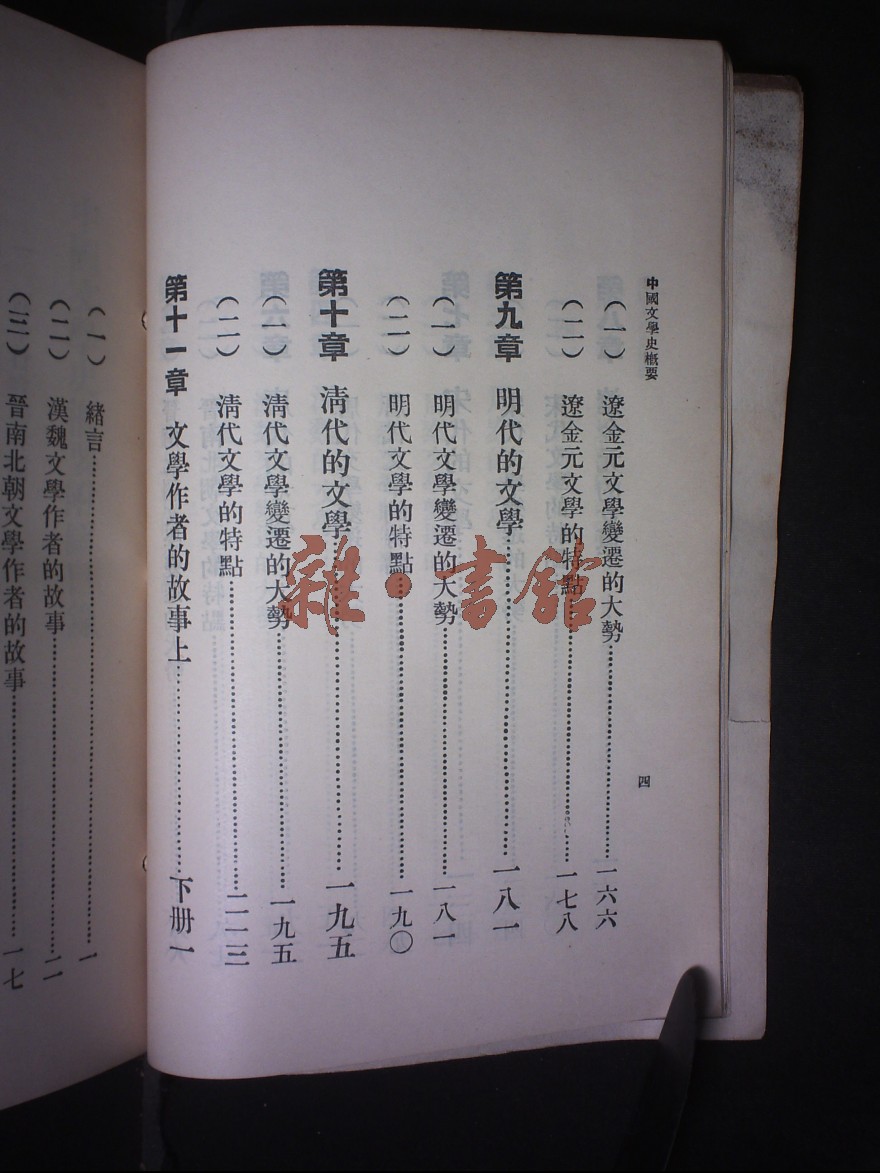 中國文學史概要
四
（一）遼金元文學變遷的大勢……一六六
（二）遼金元文學的特點……一七八
第九章 明代的文學……一八一
（一）明代文學變遷的大勢……一八一
（二）明代文學的特點……一九〇
第十章 清代的文學……一九五
（一）清代文學變遷的大勢……一九五
（二）清代文學的特點……二一三
第十一章 文學作者的故事上……下册一
（一）緒言……一
（二）漢魏文學作者的故事……二
（三）晉南北朝文學作者的故事……一七
雜·書館